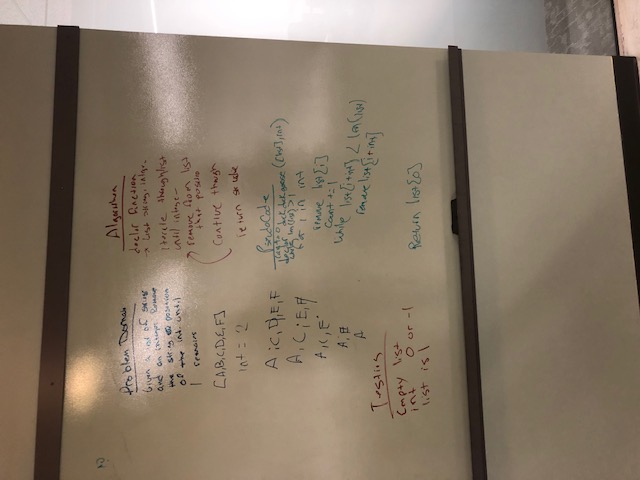 Problem Domain
Given a list of strings
and an integer. Remove
the string @ position
of the int. until
1 remains
[A,B,C,D,E,F]
int = 2
A,C,D,E,F
A,C,E,F
A,C,E
A,E
A
Testing
Empty list
int 0 or -1
list is 1
Algorithm
declar function
→ list string, intger
iterate through list
until integer
remove from list
that position
Continue though
return
PseudoCode
count = 0
declar duck_duck_goose ([list], int)
while len(list) > 1
for i in int
remove list[i]
count += 1
while list[i+int] < len(list)
remove list[i+int]
Return list[0]